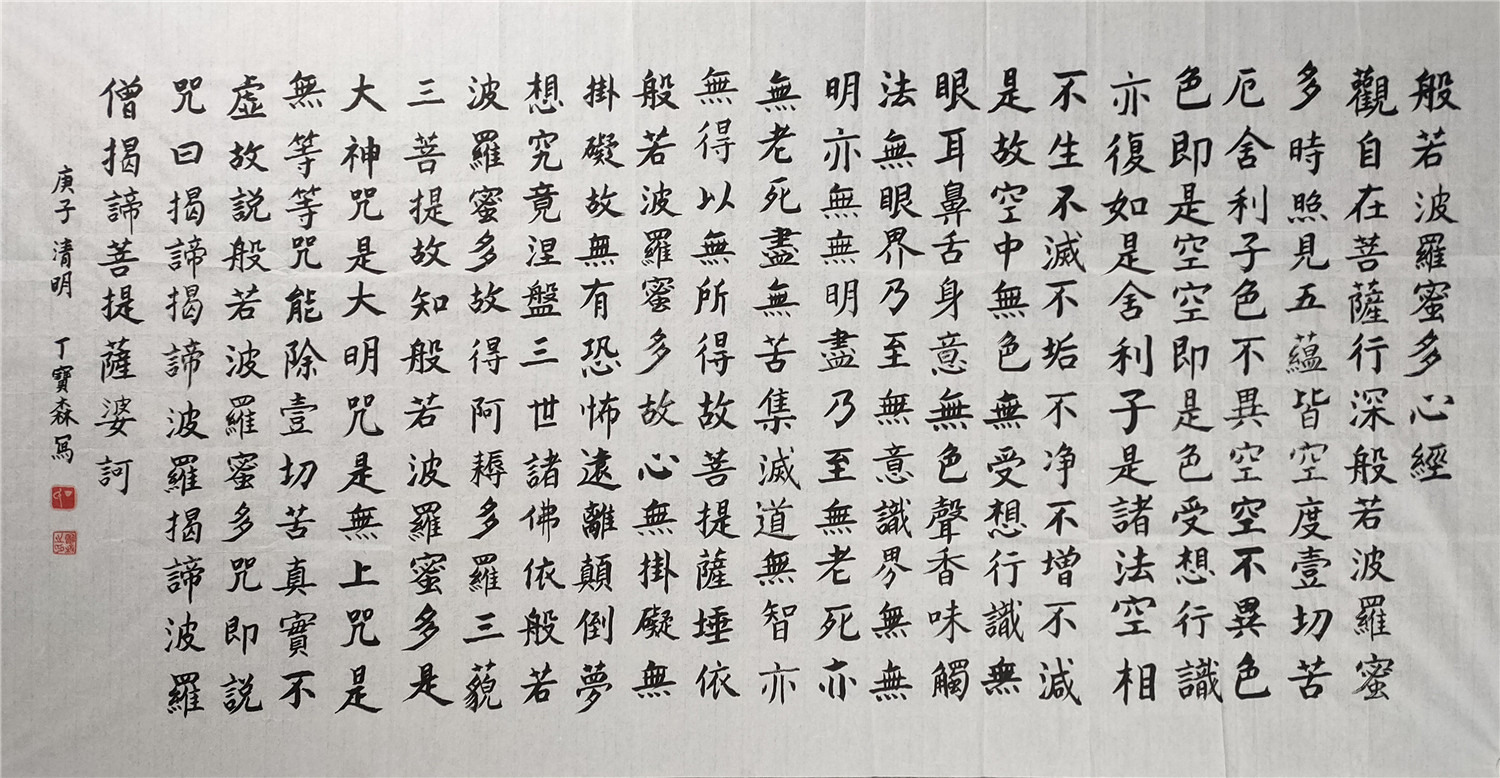 般若波羅蜜多心經
觀自在菩薩行深般若波羅蜜
多時照見五蘊皆空度壹切苦
厄舍利子色不異空空不異色
色即是空空即是色受想行識
亦復如是舍利子是諸法空相
不生不滅不垢不净不增不減
是故空中無色無受想行識無
眼耳鼻舌身意無色聲香味觸
法無眼界乃至無意識界無無
明亦無無明盡乃至無老死亦
無老死盡無苦集滅道無智亦
無得以無所得故菩提薩埵依
般若波羅蜜多故心無掛礙無
掛礙故無有恐怖遠離顛倒夢
想究竟涅盤三世諸佛依般若
波羅蜜多故得阿耨多羅三藐
三菩提故知般若波羅蜜多是
大神咒是大明咒是無上咒是
無等等咒能除壹切苦真實不
虛故説般若波羅蜜多咒即説
咒曰揭諦揭諦波羅揭諦波羅
僧揭諦菩提薩婆訶
庚子清明 丁寶森寫